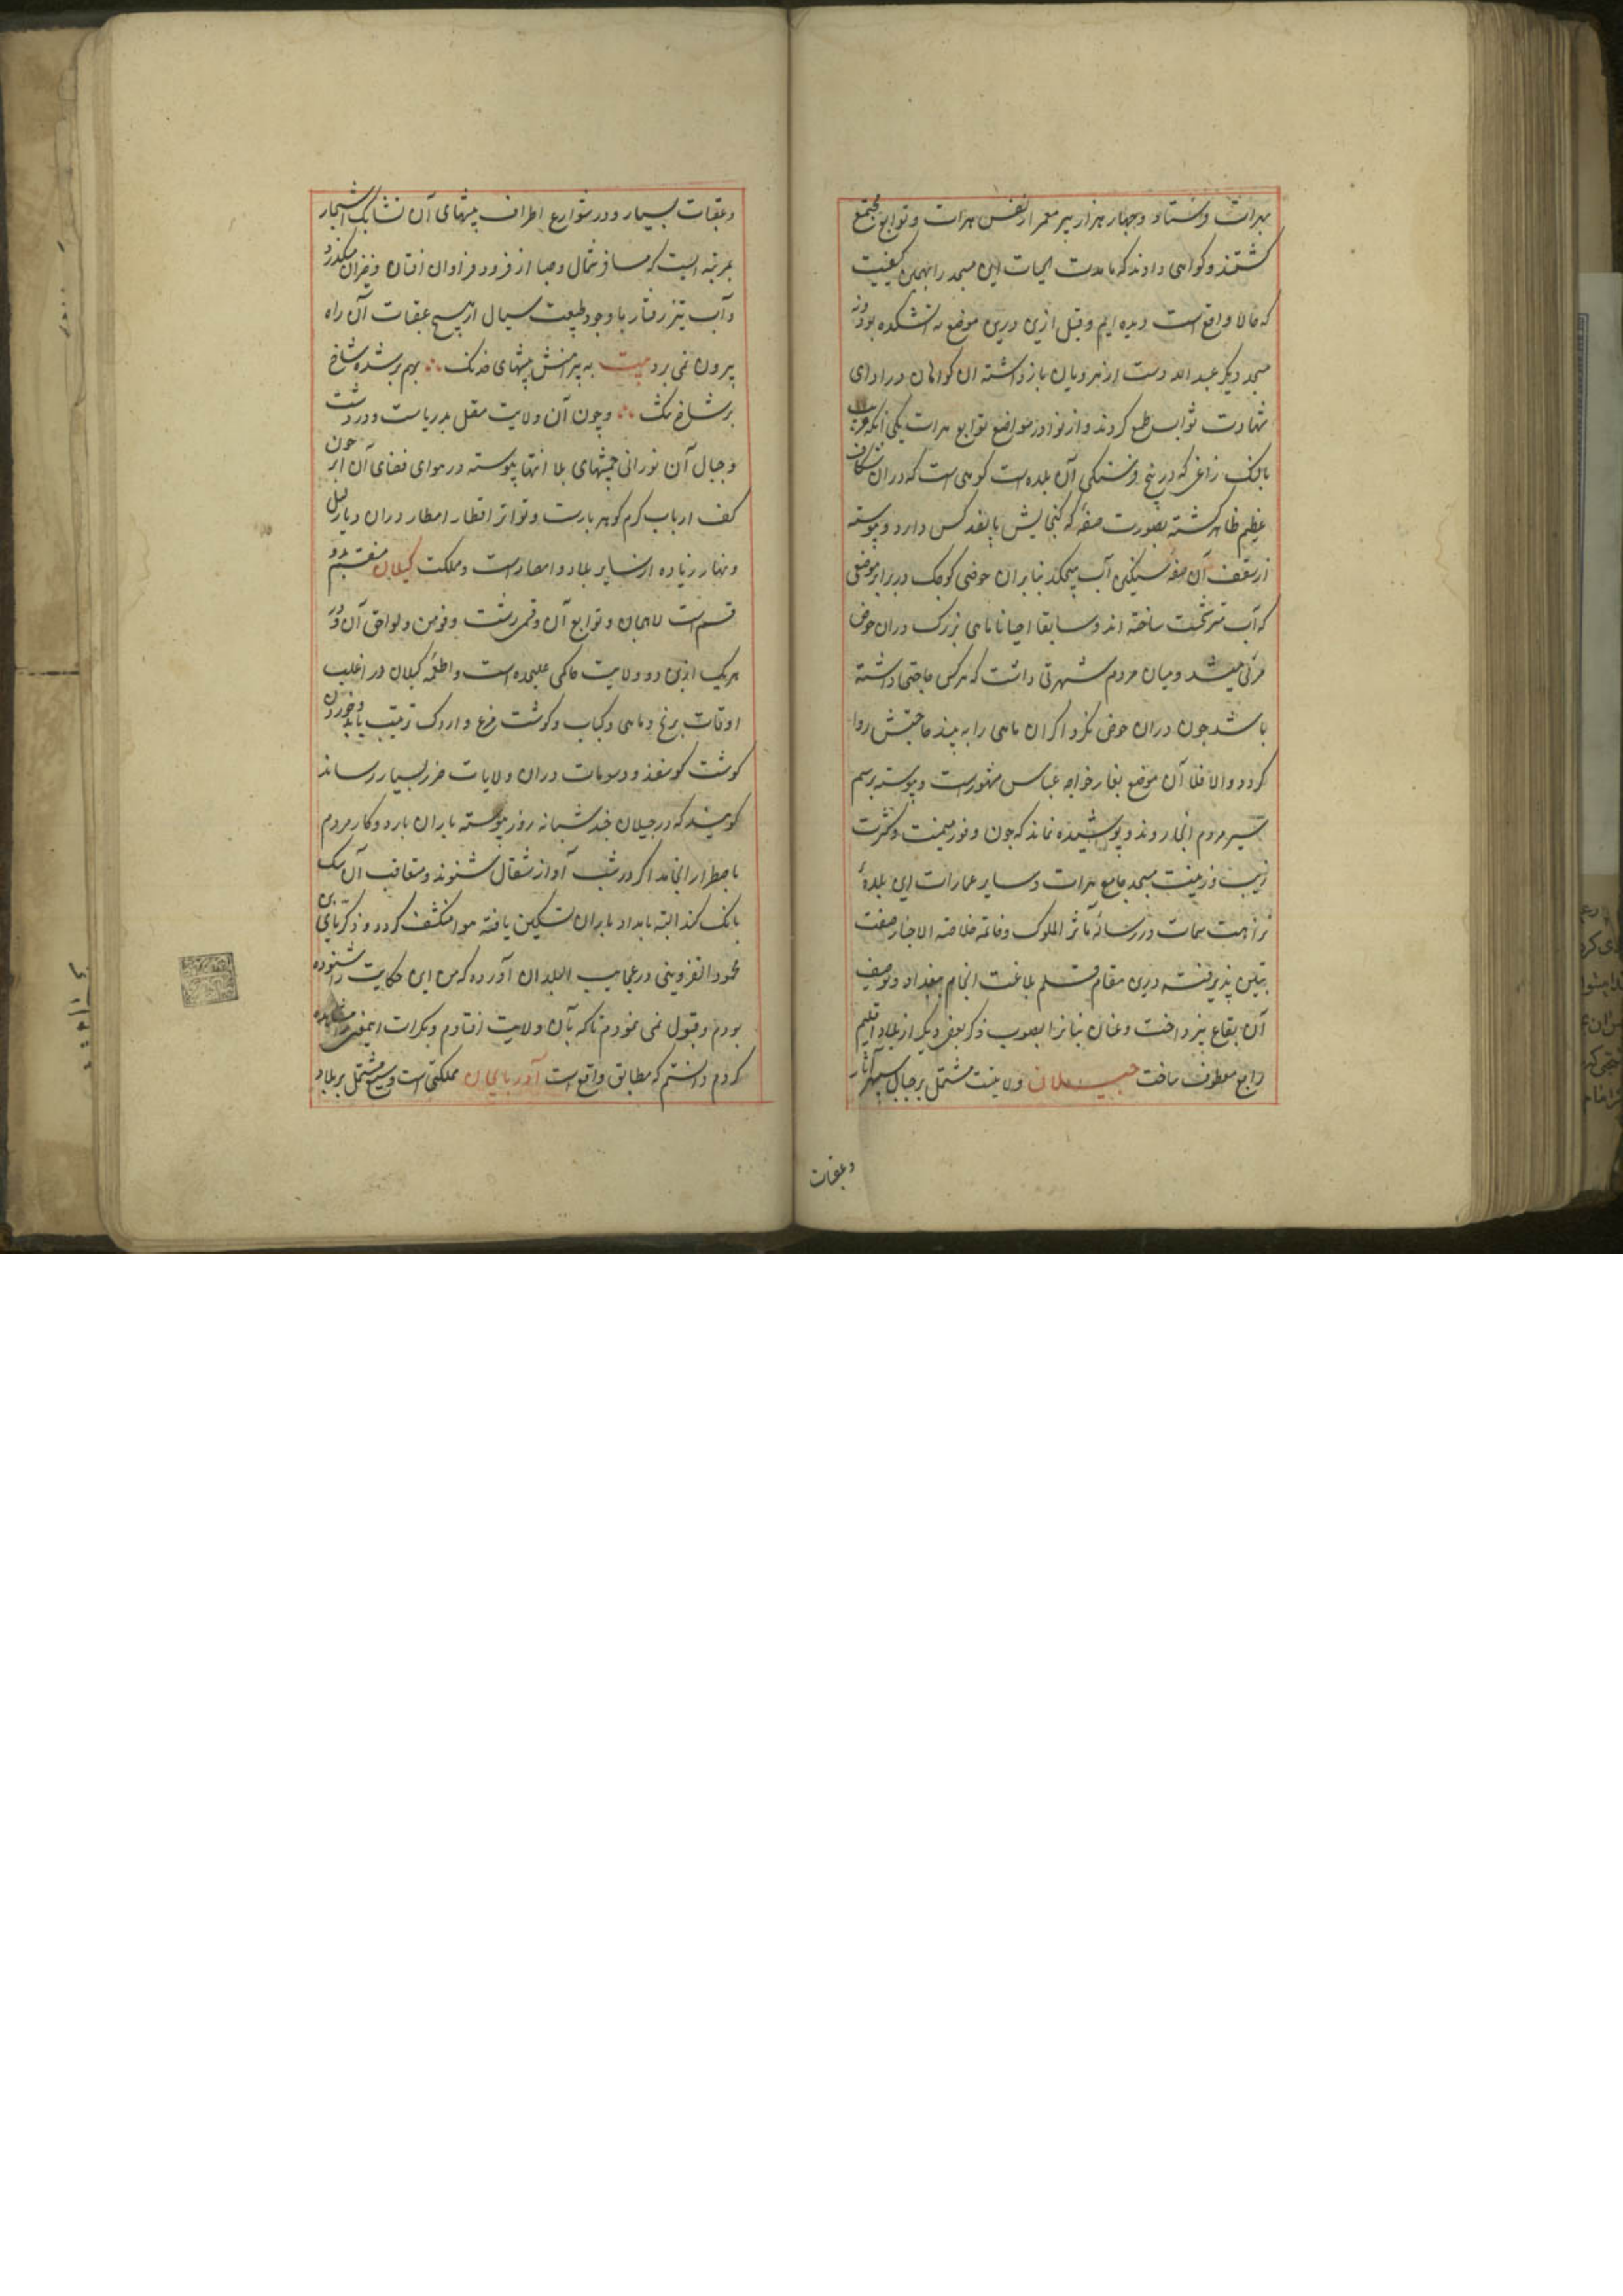 بهرات فرستاد و چهار هزار پیر معمر از نفس هرات و توابع مجتمع
کشتند و کواهی دادند که ما مدت الحیات این مسجد را بهمین کیفیت
که حالا واقع است دیده ایم و قبل ازین درین موضع نه آتشکده بود و نه
مسجد دیکر عبد الله دست از هرویان باز داشته آن کواهان در ادای
شهادت ثواب طمع کردند و از نوادر مواضع توابع هرات یکی آنکه قریب
بانک زاغی که در پنج فرسنکی آن بلده است کوهی است که در ان شکاف
عظیم ظاهر کشته بصورت صفه که کنجایش پانصد کس دارد و پیوسته
از سقف آن صفه سنکین آب میچکد بنابران حوضی کوچک در برابر موضعی
که آب مترشحست ساخته اند و سابقا احیانا ماهی بزرک دران حوض
مرئی میشد و میان مردم شهرتی داشت که هرکس حاجتی داشته
باشد چون دران حوض نکرد اکر ان ماهی را به بیند حاجتش روا
کردد والا فلا آن موضع بغار خواجه عباس مشهورست و پیوسته برسم
سیر مردم آنجا روند و پوشیده نماند که چون وفور میمنت و کثرت
زیب و زینت مسجد جامع هرات و سایر عمارات این بلدهٔ
نزاهت سمات در رساله مآثر الملوک و خاتمه خلاصه الاخبار صفت
تبیین پذیرفته درین مقام قلم بلاغت انجام بتعداد و توصیف
آن بقاع نپرداخت و عنان بیانرا بصوب ذکر بعضی دیکر از بلاد اقلیم
رابع معطوف ساخت جیلان ولایتیست مشتمل بر جبال سپهر آثار
وعقبات
وعقبات بسیار و در شوارع اطراف بیشهای آن تشابک اشجار
بمرتبه ایست که مسافر شمال و صبا از فرود فراوان افتان و خیزان میکذرد
و آب تیز رفتار با وجود طبیعت سیال از هیچ عقبات آن راه
بیرون نمی برد بیت به پیرامنش بیشهای خدنک بهم بر شده شاخ
بر شاخ تنک و چون آن ولایت متصل بدریاست و در دشت
و جبال آن نورانی چشمهای بلا انتها پیوسته در هوای فضای آن ابر چون
کف ارباب کرم کوهر بارست و تواتر اقطار امطار دران دیار لیل
و نهار زیاده از سایر بلاد و امصارست و مملکت کیلان منقسم بدو
قسم است لاهجان و توابع آن و قمی رشت و فومن و لواحق آن و در
هریک ازین دو ولایت حاکمی علیحده است و اطعمه کیلان در اغلب
اوقات برنج و ماهی و کباب و کوشت مرغ و اردک ترتیب یابد و خوردن
کوشت کوسفند و دسومات دران ولایات ضرر بسیار رساند
کویند که در جیلان چند شبانه روز پیوسته باران بارد و کار مردم
باضطرار انجامد اکر در شب آواز شغال شنوند و متعاقب آن سک
بانک کند البته بامداد باران تسکین یافته هوا منکشف کردد و ذکریای بن
محمود القزوینی در عجایب البلدان آورده که من این حکایت را شنوده
بودم و قبول نمی نمودم تا که بآن ولایت افتادم و بکرات اینمعنی را مشاهده
کردم دانستم که مطابق واقع است آذربایجان مملکتی است وسیع مشتمل بر بلاد